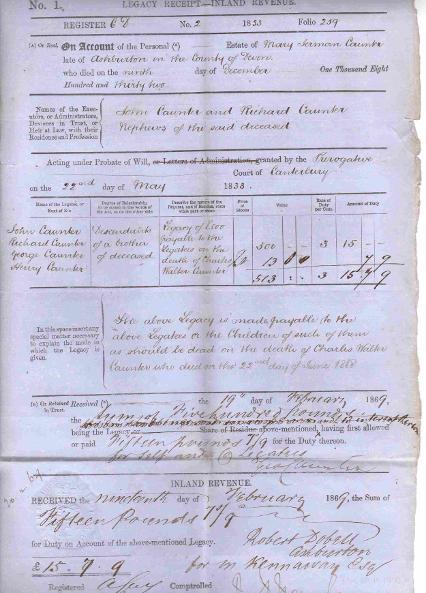 No. 1. LEGACY RECEIPT—INLAND REVENUE.
REGISTER No. 2 1833 Folio 259
(a) Or Real. On Account of the Personal (a) Estate of Mary Jerman Caunter
late of Ashburton in the County of Devon
who died on the ninth day of December One Thousand Eight
Hundred and thirty two
Names of the Executors, or Administrators, Devisees in Trust, or Heir at Law, with their Residence and Profession
John Caunter and Richard Caunter
Nephews of the said deceased
Acting under Probate of Will, or Letters of Administration, granted by the Prerogative
Court of Canterbury
on the 22nd day of May 1833.
Name of the Legatee, or Next of Kin Value Rate of Duty per Cent. Amount of Duty
John Caunter Descendants Legacy of £500
Richard Caunter of a brother payable to the 500 - - 3 15 - -
George Caunter of deceased Legatees on the 13 7 9
Henry Caunter death of Charles 513 - - 3 15 7 9
Walter Caunter
In this space insert any special matter necessary to explain the mode in which the Legacy is given.
The above Legacy is made payable to the
above Legatees or the Children of such of them
as should be dead on the death of Charles Walter
Caunter who died on the 22nd day of June 1868
(a) Or Retained in Trust. Received (a) the 19th day of February 1869,
the Sum of Five hundred pounds
being the Legacy or Share of Residue above-mentioned, having first allowed
or paid Fifteen pounds 7/9 for the Duty thereon.
for self and Co Legatees
INLAND REVENUE.
RECEIVED the nineteenth day of February 1869, the Sum of
Fifteen Pounds 7s/9
for Duty on Account of the above-mentioned Legacy.
Robert
Ashburton
£15.7.9 for M Kennaway Esq
Registered Comptrolled